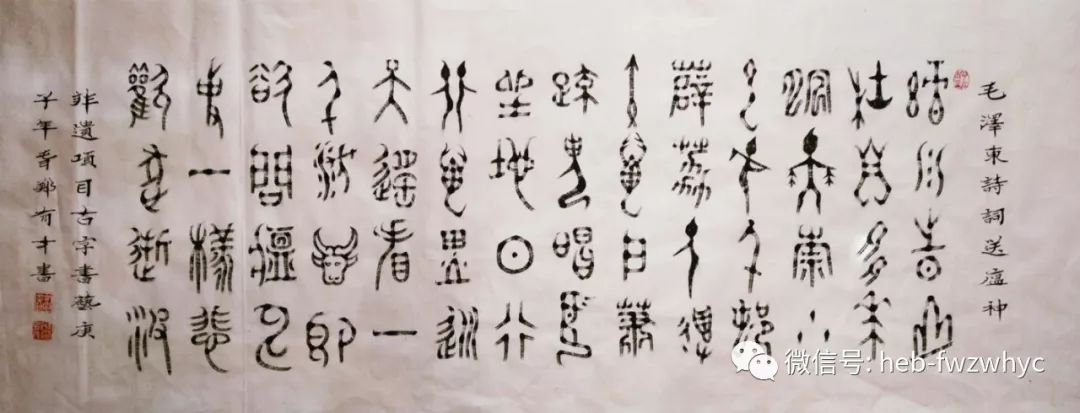 毛澤東詩詞送瘟神
綠水青山
枉自多華
佗無奈小
虫何千村
薜荔人遺
矢萬户蕭
疏鬼唱歌
坐地日行
八萬里巡
天遙看一
千河牛郎
欲問瘟神
事一樣悲
歡逐逝波
非遺項目古字書藝庚
子年春鄭有才書
微信号: heb-fwzwhyc